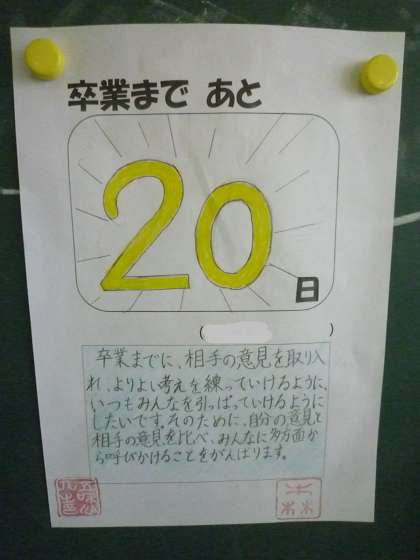 卒業まで あと
20
日
( )
卒業までに、相手の意見を取り入
れ、よりよい考えを練っていけるように、
いつもみんなを引っぱっていけるように
したいです。そのために、自分の意見と
相手の意見を比べ、みんなに多方面か
ら呼びかけることをがんばります。